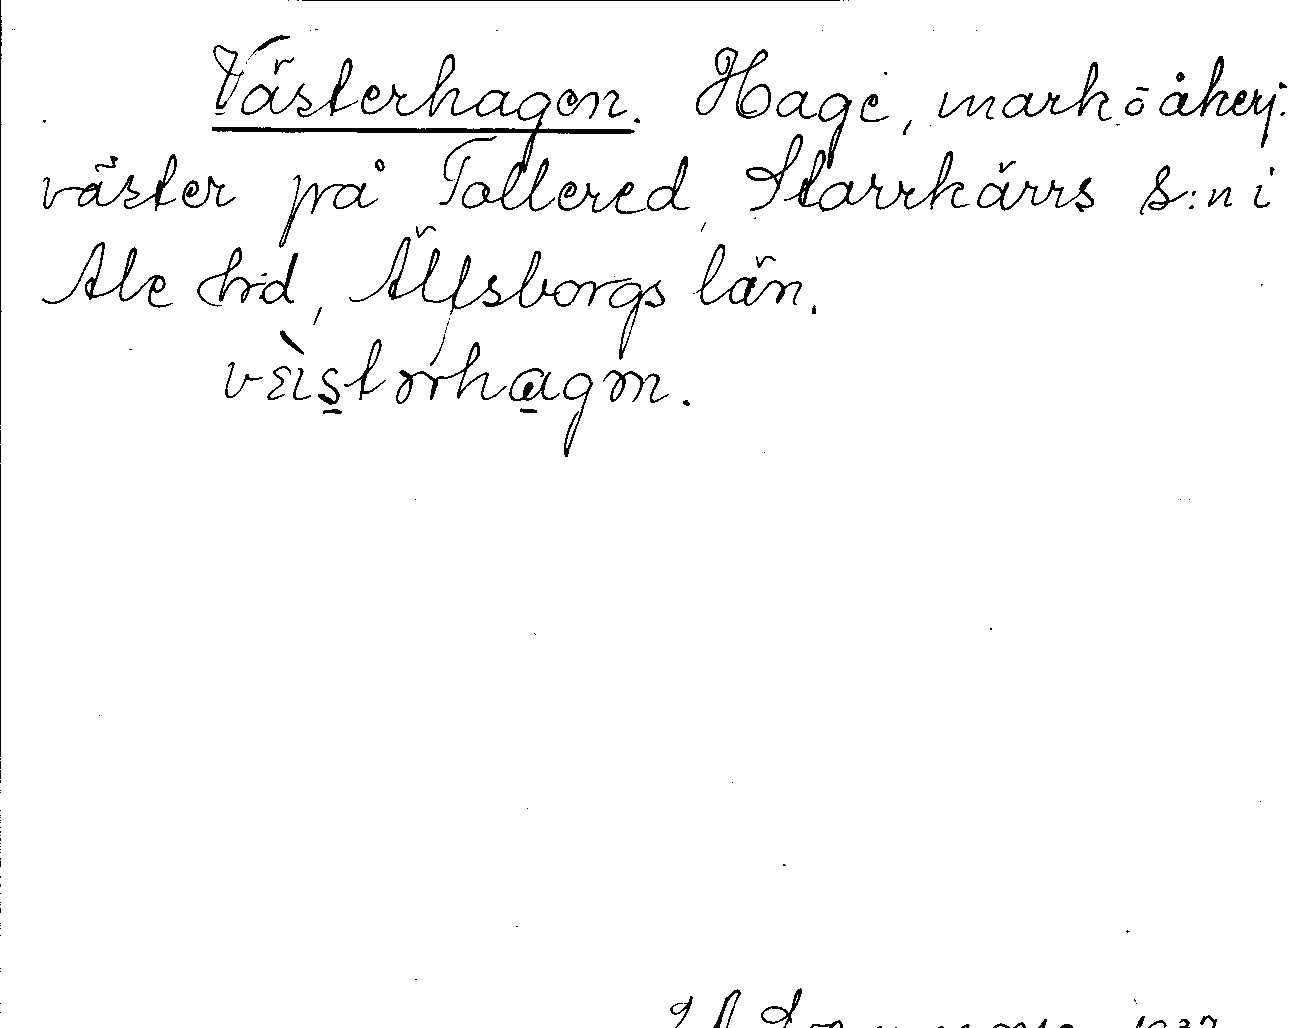 Västerhagen. Hage, mark o åkerj.
väster på Tollered, Starrkärrs s:n i
Ale hd, Älfsborgs län.